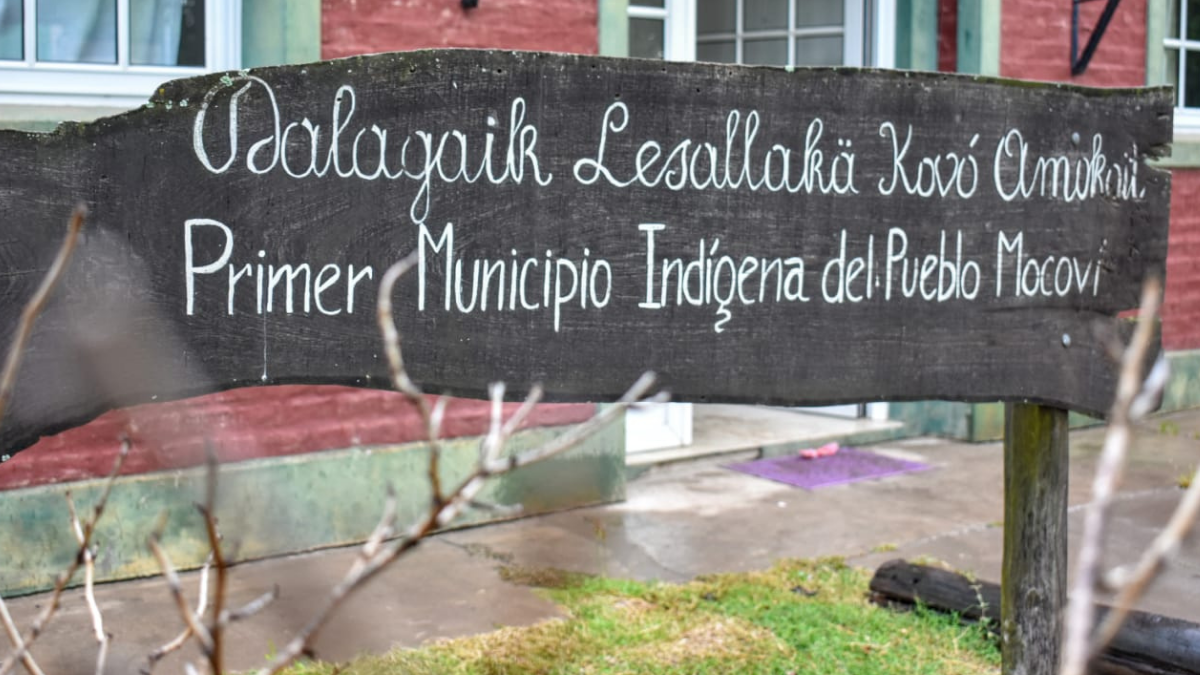 Dalagaik Lesallakä Kovó
Primer Municipio Indígena del Pueblo Mocoví